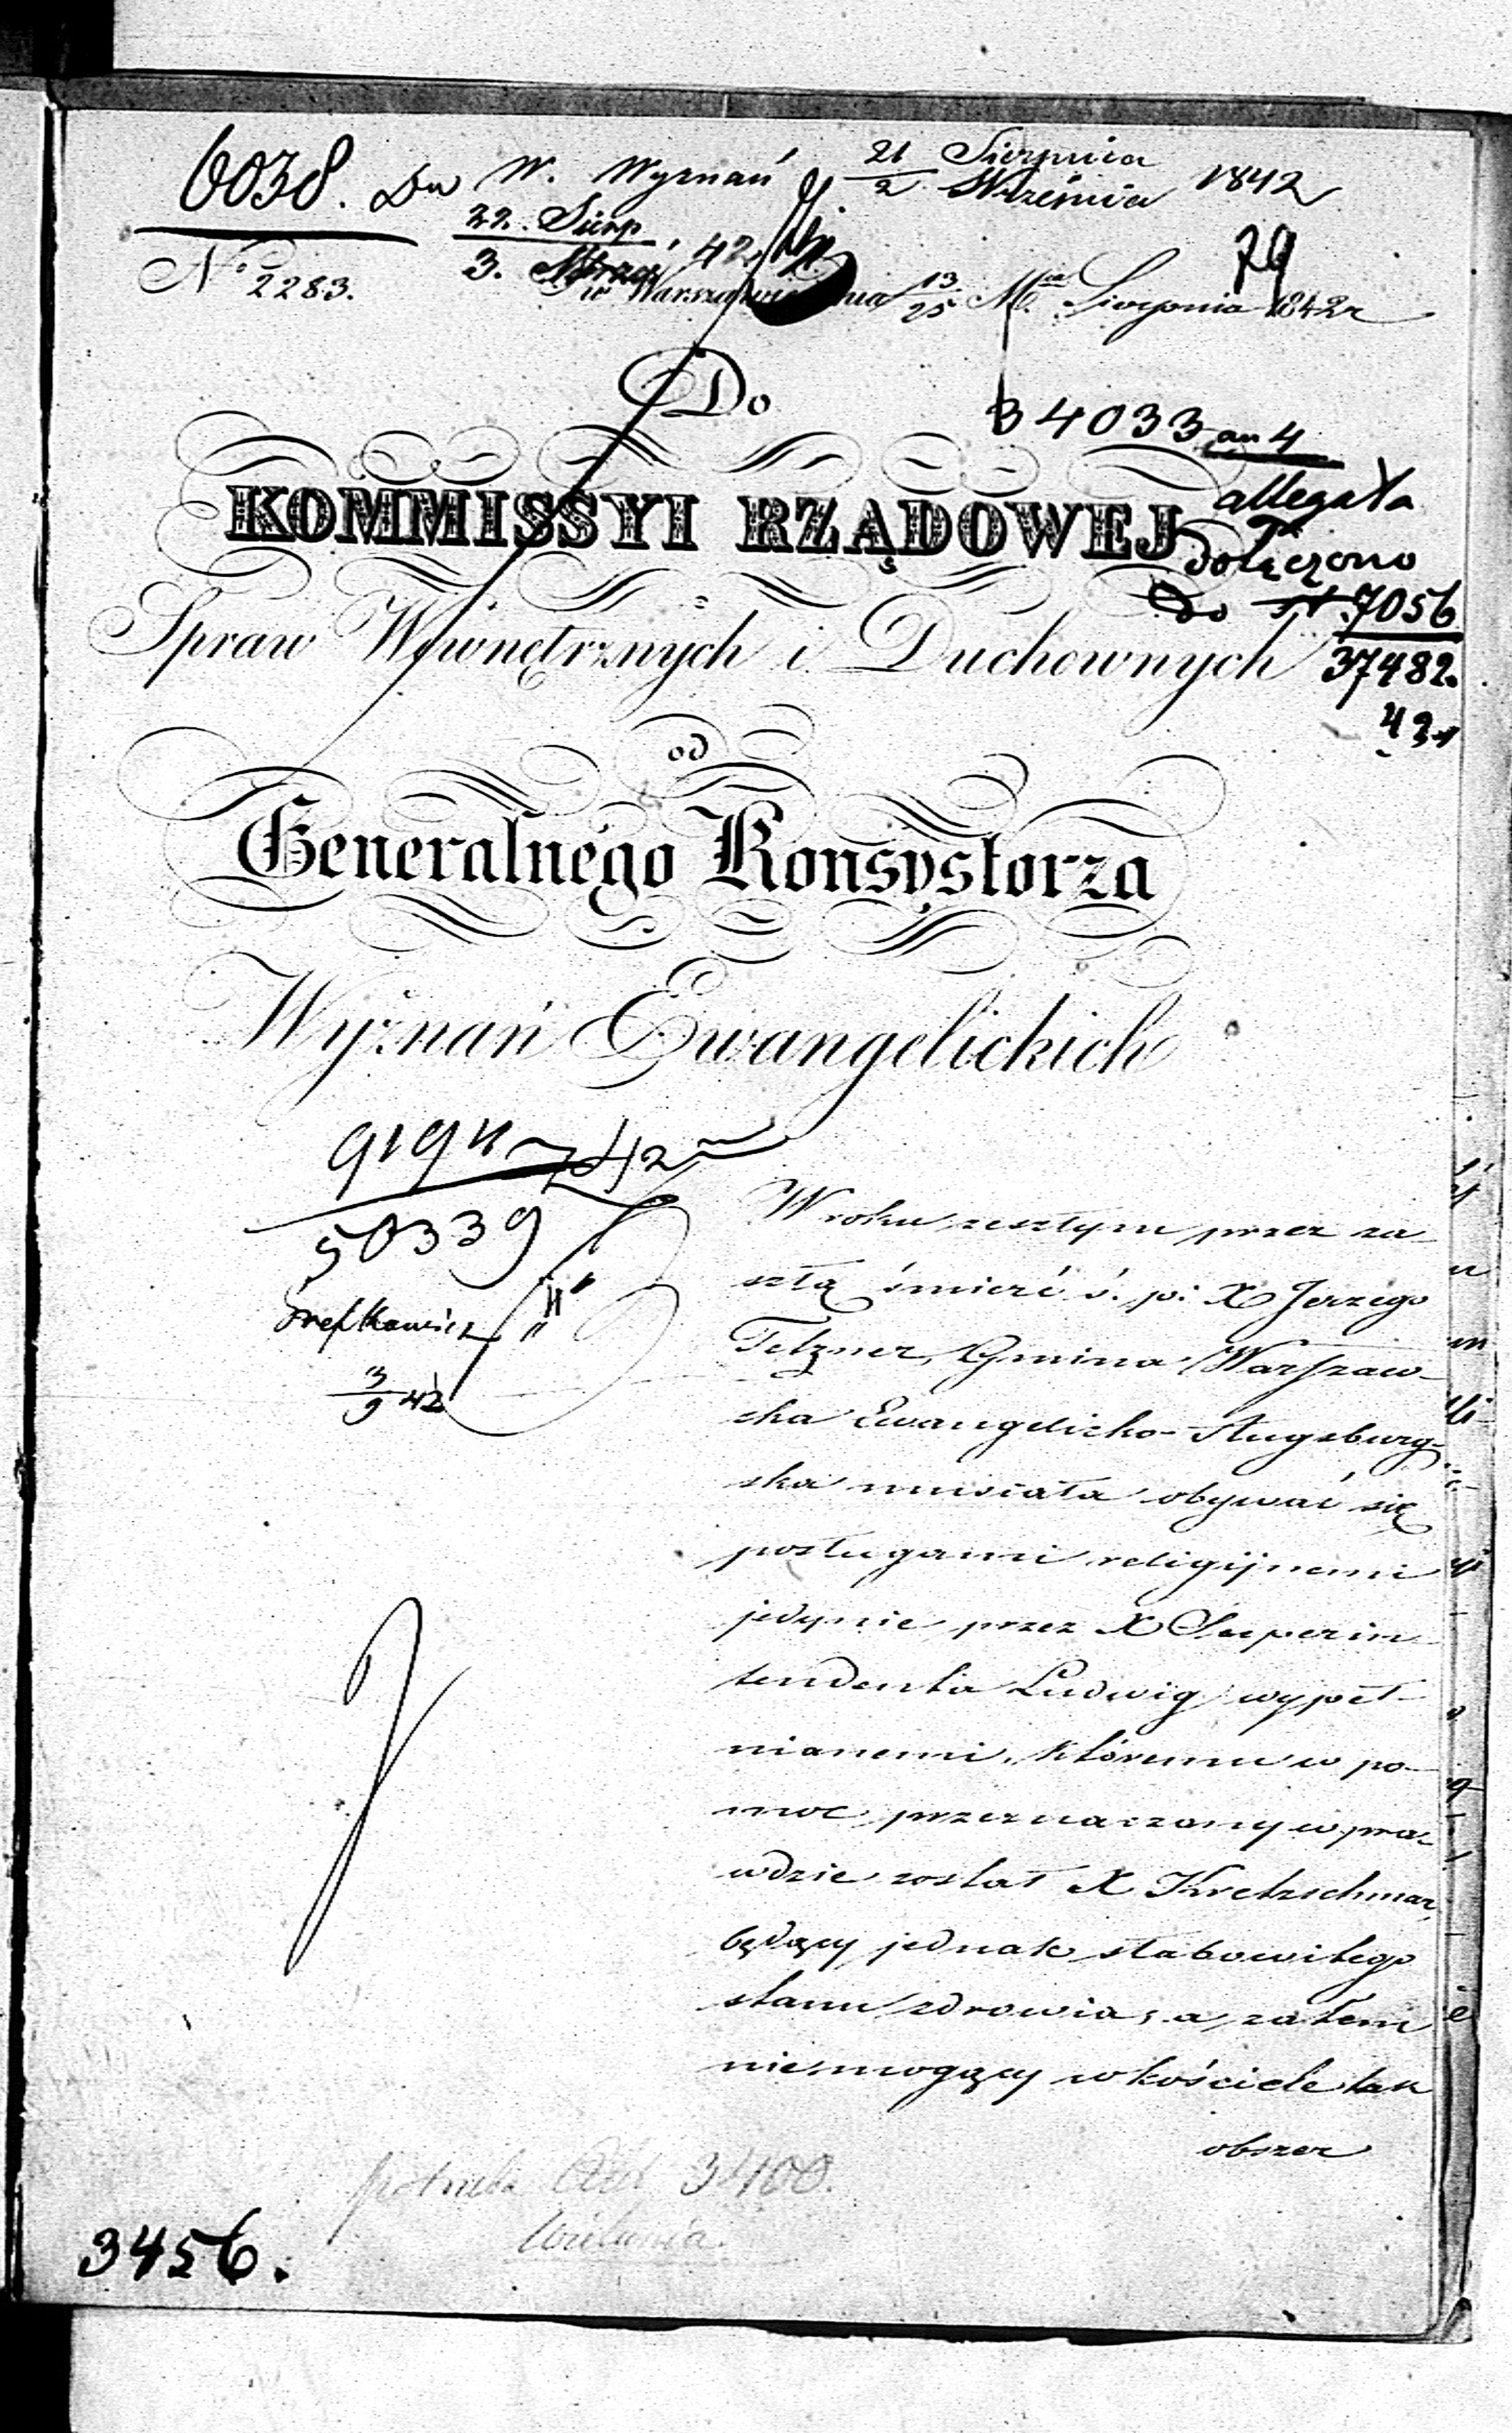 6038. Dn W. Wyznań 21/2 Sierpnia Września 1842
22. Sierp
3. 42
79
No 2283.
w Warszawie dnia 13/25 Mca Sierpnia 1842 r
Do
34033 an 4
KOMMISSYI RZĄDOWEJ
allegata
dołączono
do 7056
Spraw Wewnętrznych i Duchownych
37482.
42
od
Generalnego Konsystorza
Wyznań Ewangelickich
50339
3/9 42
W roku zeszłym przez za-
szłą śmierć ś. p. X Jerzego
Tetzner, Gmina Warszaw-
ska Ewangelicko-Augsburg-
ska musiała obywać się
posługami religijnemi
jedynie przez X Superin
tendenta Ludwig wypeł-
nianemi, któremu w po-
moc przeznaczony wpra-
wdzie został X Kretzschmar,
będący jednak słabowitego
stanu zdrowia, a zatem
niemogący w kościele tak
obszer
3400.
3456.